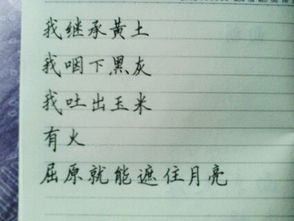 我继承黄土
我咽下黑灰
我吐出玉米
有火
屈原就能遮住月亮